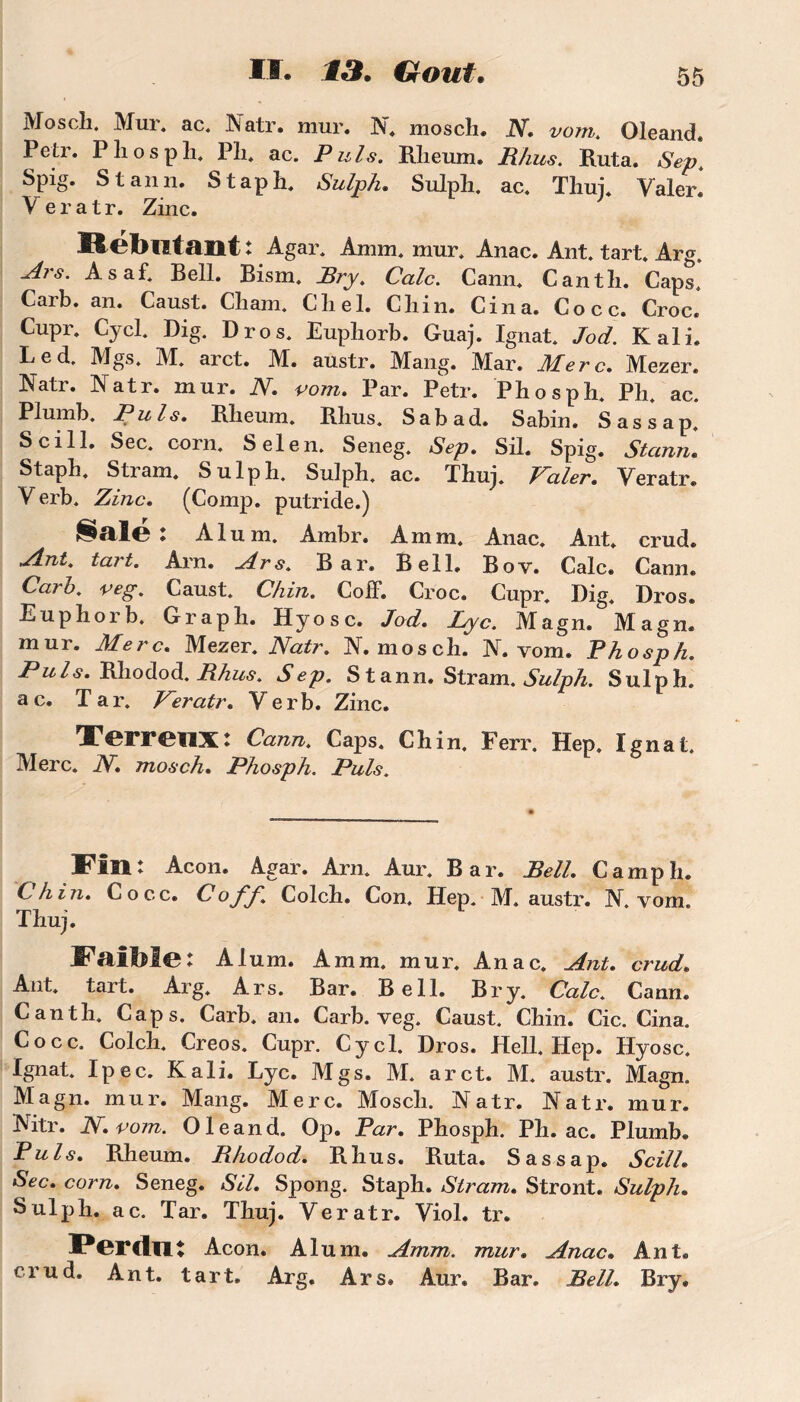 II. 13. Gout. 55
Mosch. Mur. ac. Natr. mur. N. mosch. N. vom. Oleand.
Petr. Phosph. Ph. ac. Puls. Rheum. Rhus. Ruta. Sep.
Spig. Stann. Staph. Sulph. Sulph. ac. Thuj. Valer.
Veratr. Zinc.
Rébutant: Agar. Amm. mur. Anac. Ant. tart. Arg.
Ars. Asaf. Bell. Bism. Bry. Calc. Cann. Canth. Caps.
Carb. an. Caust. Cham. Chel. Chin. Cina. Cocc. Croc.
Cupr. Cycl. Dig. Dros. Euphorb. Guaj. Ignat. Jod. Kali.
Led. Mgs. M. arct. M. austr. Mang. Mar. Merc. Mezer.
Natr. Natr. mur. N. vom. Par. Petr. Phosph. Ph. ac.
Plumb. Puls. Rheum. Rhus. Sabad. Sabin. Sassap.
Scill. Sec. corn. Selen. Seneg. Sep. Sil. Spig. Stann.
Staph. Stram. Sulph. Sulph. ac. Thuj. Valer. Veratr.
Verb. Zinc. (Comp. putride.)
Salé: Alum. Ambr. Amm. Anac. Ant. crud.
Ant. tart. Arn. Ars. Bar. Bell. Bov. Calc. Cann.
Carb. veg. Caust. Chin. Coff. Croc. Cupr. Dig. Dros.
Euphorb. Graph. Hyosc. Jod. Lyc. Magn. Magn.
mur. Merc. Mezer. Natr. N. mosch. N. vom. Phosph.
Puls. Rhodod. Rhus. Sep. Stann. Stram. Sulph. Sulph.
ac. Tar. Veratr. Verb. Zinc.
Terreux: Cann. Caps. Chin. Ferr. Hep. Ignat.
Merc. N. mosch. Phosph. Puls.
Fin: Acon. Agar. Arn. Aur. Bar. Bell. Camph.
Chin. Cocc. Coff. Colch. Con. Hep. M. austr. N. vom.
Thuj.
Faible: Alum. Amm. mur. Anac. Ant. crud.
Ant. tart. Arg. Ars. Bar. Bell. Bry. Calc. Cann.
Canth. Caps. Carb. an. Carb. veg. Caust. Chin. Cic. Cina.
Cocc. Colch. Creos. Cupr. Cycl. Dros. Hell. Hep. Hyosc.
Ignat. Ipec. Kali. Lyc. Mgs. M. arct. M. austr. Magn.
Magn. mur. Mang. Merc. Mosch. Natr. Natr. mur.
Nitr. N. vom. Oleand. Op. Par. Phosph. Ph. ac. Plumb.
Puls. Rheum. Rhodod. Rhus. Ruta. Sassap. Scill.
Sec. corn. Seneg. Sil. Spong. Staph. Stram. Stront. Sulph.
Sulph. ac. Tar. Thuj. Veratr. Viol. tr.
Perdu: Acon. Alum. Amm. mur. Anac. Ant.
crud. Ant. tart. Arg. Ars. Aur. Bar. Bell. Bry.